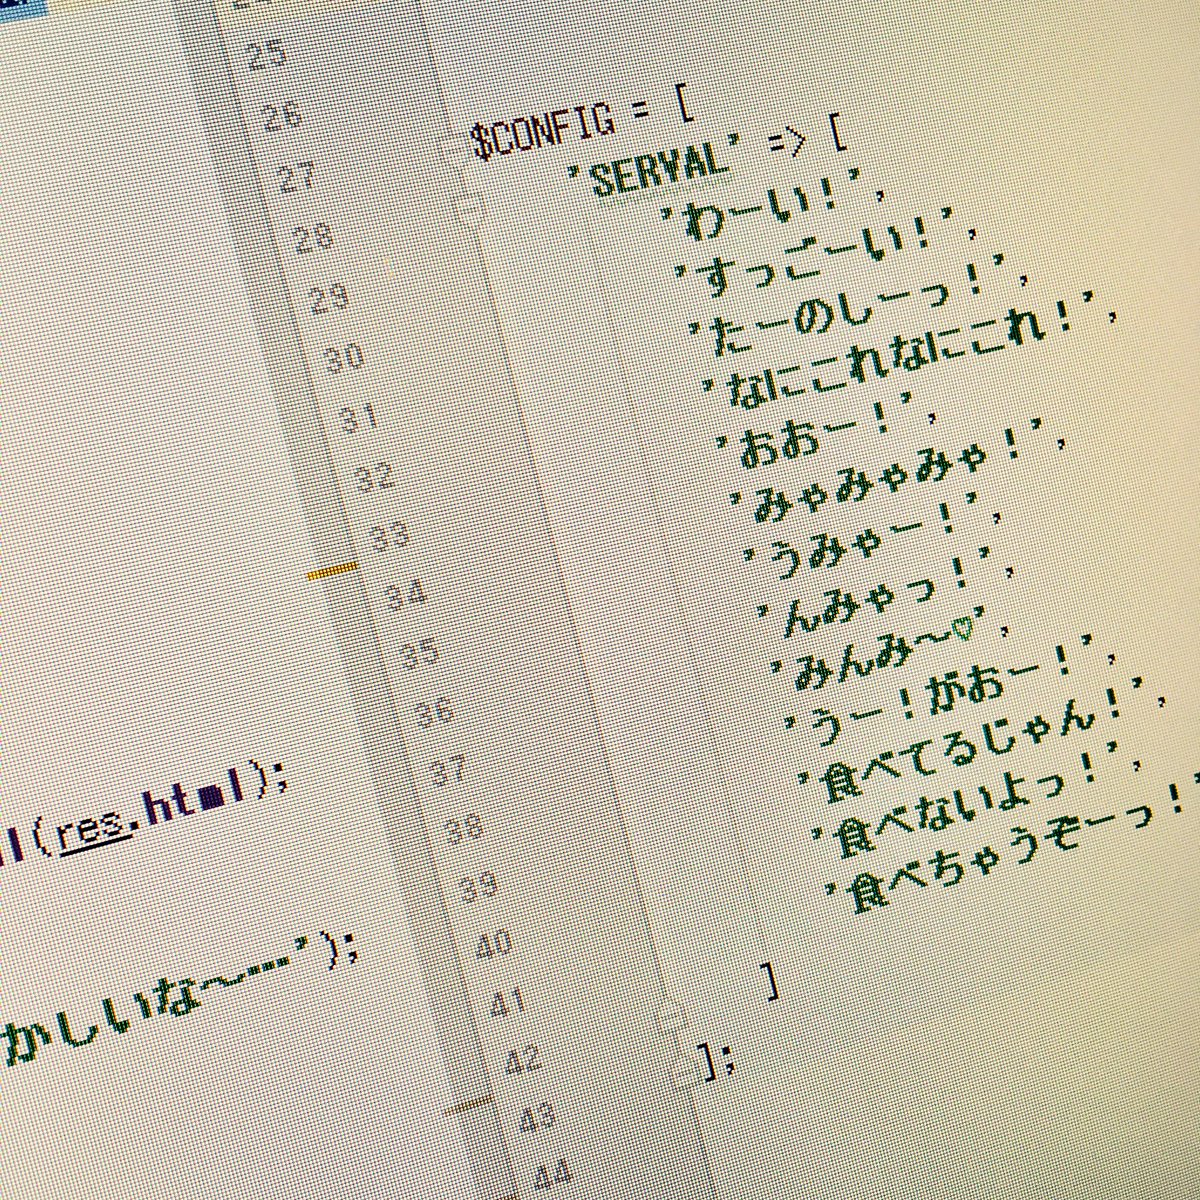 l(res.html);
かしいな～…');
25
26
27
28
29
30
31
32
33
34
35
36
37
38
39
40
41
42
43
44
$CONFIG = [
'SERVAL' => [
'わーい！',
'すっごーい！',
'たーのしーっ！',
'なにこれなにこれ！',
'おおー！',
'みゃみゃみゃ！',
'うみゃー！',
'んみゃっ！',
'みんみ～♡',
'うー！がおー！',
'食べてるじゃん！',
'食べないよっ！',
'食べちゃうぞーっ！'
]
];